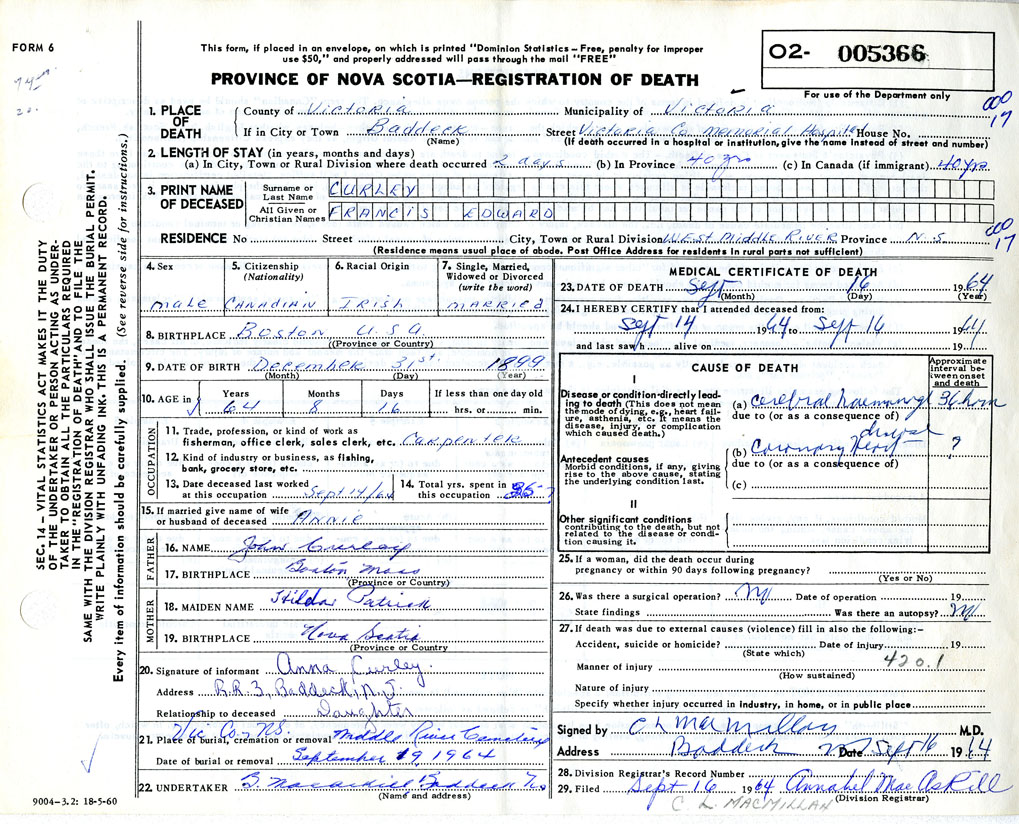 FORM 6
This form, if placed in an envelope, on which is printed "Dominion Statistics – Free, penalty for improper
use $50," and properly addressed will pass through the mail "FREE"
PROVINCE OF NOVA SCOTIA—REGISTRATION OF DEATH
O2- 005366
For use of the Department only
SEC. 14 – VITAL STATISTICS ACT MAKES IT THE DUTY
OF THE UNDERTAKER OR PERSON ACTING AS UNDER-
TAKER TO OBTAIN ALL THE PARTICULARS REQUIRED
IN THE "REGISTRATION OF DEATH" AND TO FILE THE
SAME WITH THE DIVISION REGISTRAR WHO SHALL ISSUE THE BURIAL PERMIT.
WRITE PLAINLY WITH UNFADING INK. THIS IS A PERMANENT RECORD.
Every item of information should be carefully supplied. (See reverse side for instructions.)
1. PLACE OF DEATH
County of Victoria Municipality of Victoria
000
17
If in City or Town Baddeck Street Victoria Co. Memorial Hospital House No.
(Name) (If death occurred in a hospital or institution, give the name instead of street and number)
2. LENGTH OF STAY (in years, months and days)
(a) In City, Town or Rural Division where death occurred 2 days (b) In Province 40 yrs (c) In Canada (if immigrant) 40 yrs.
3. PRINT NAME OF DECEASED
Surname or Last Name CURLEY
All Given or Christian Names FRANCIS EDWARD
000
17
RESIDENCE No Street City, Town or Rural Division West Middle River Province N.S
(Residence means usual place of abode. Post Office Address for residents in rural parts not sufficient)
4. Sex
male
5. Citizenship (Nationality)
Canadian
6. Racial Origin
Irish
7. Single, Married, Widowed or Divorced (write the word)
married
8. BIRTHPLACE Boston U.S.A
(Province or Country)
9. DATE OF BIRTH December 31st. 1899
(Month) (Day) (Year)
10. AGE in Years Months Days If less than one day old
64 8 16 hrs. or min.
OCCUPATION
11. Trade, profession, or kind of work as
fisherman, office clerk, sales clerk, etc. Carpenter
12. Kind of industry or business, as fishing,
bank, grocery store, etc.
13. Date deceased last worked
at this occupation Sept 14/64
14. Total yrs. spent in
this occupation 35
15. If married give name of wife
or husband of deceased Annie
FATHER
16. NAME John Curley
17. BIRTHPLACE Boston Mass
(Province or Country)
MOTHER
18. MAIDEN NAME Hilda Patrick
19. BIRTHPLACE Nova Scotia
(Province or Country
20. Signature of informant Anna Curley.
Address R.R.3, Baddeck, N.S.
Relationship to deceased Daughter
Vic Co. NS.
21. Place of burial, cremation or removal Middle River Cemetery
Date of burial or removal September 19 1964
22. UNDERTAKER B. Macaskill Baddeck N.S
(Name and address)
9004-3.2: 18-5-60
MEDICAL CERTIFICATE OF DEATH
23. DATE OF DEATH Sept 16 1964
(Month) (Day) (Year)
24. I HEREBY CERTIFY that I attended deceased from:
Sept 14 1964 to Sept 16 1964
and last saw h alive on 19
CAUSE OF DEATH
Approximate Interval between onset and death
I
Disease or condition directly leading to death (This does not mean the mode of dying, e.g., heart failure, asthenia, etc. It means the disease, injury, or complication which caused death.)
(a) Cerebral haemorrhage 36 hours
due to (or as a consequence of)
Antecedent causes
Morbid conditions, if any, giving rise to the above cause, stating the underlying condition last.
(b) Coronary heart disease ?
due to (or as a consequence of)
(c)
II
Other significant conditions
contributing to the death, but not related to the disease or condition causing it.
25. If a woman, did the death occur during
pregnancy or within 90 days following pregnancy?
(Yes or No)
26. Was there a surgical operation? No Date of operation 19
State findings Was there an autopsy? No
27. If death was due to external causes (violence) fill in also the following:–
Accident, suicide or homicide? Date of injury 19
(State which)
420.1
Manner of injury
(How sustained)
Nature of injury
Specify whether injury occurred in industry, in home, or in public place
Signed by C L MacMillan M.D.
Address Baddeck Date Sept 16 1964
28. Division Registrar's Record Number
29. Filed Sept 16 1964 Annabel Mae Askill
(Division Registrar)
C. L. MACMILLAN